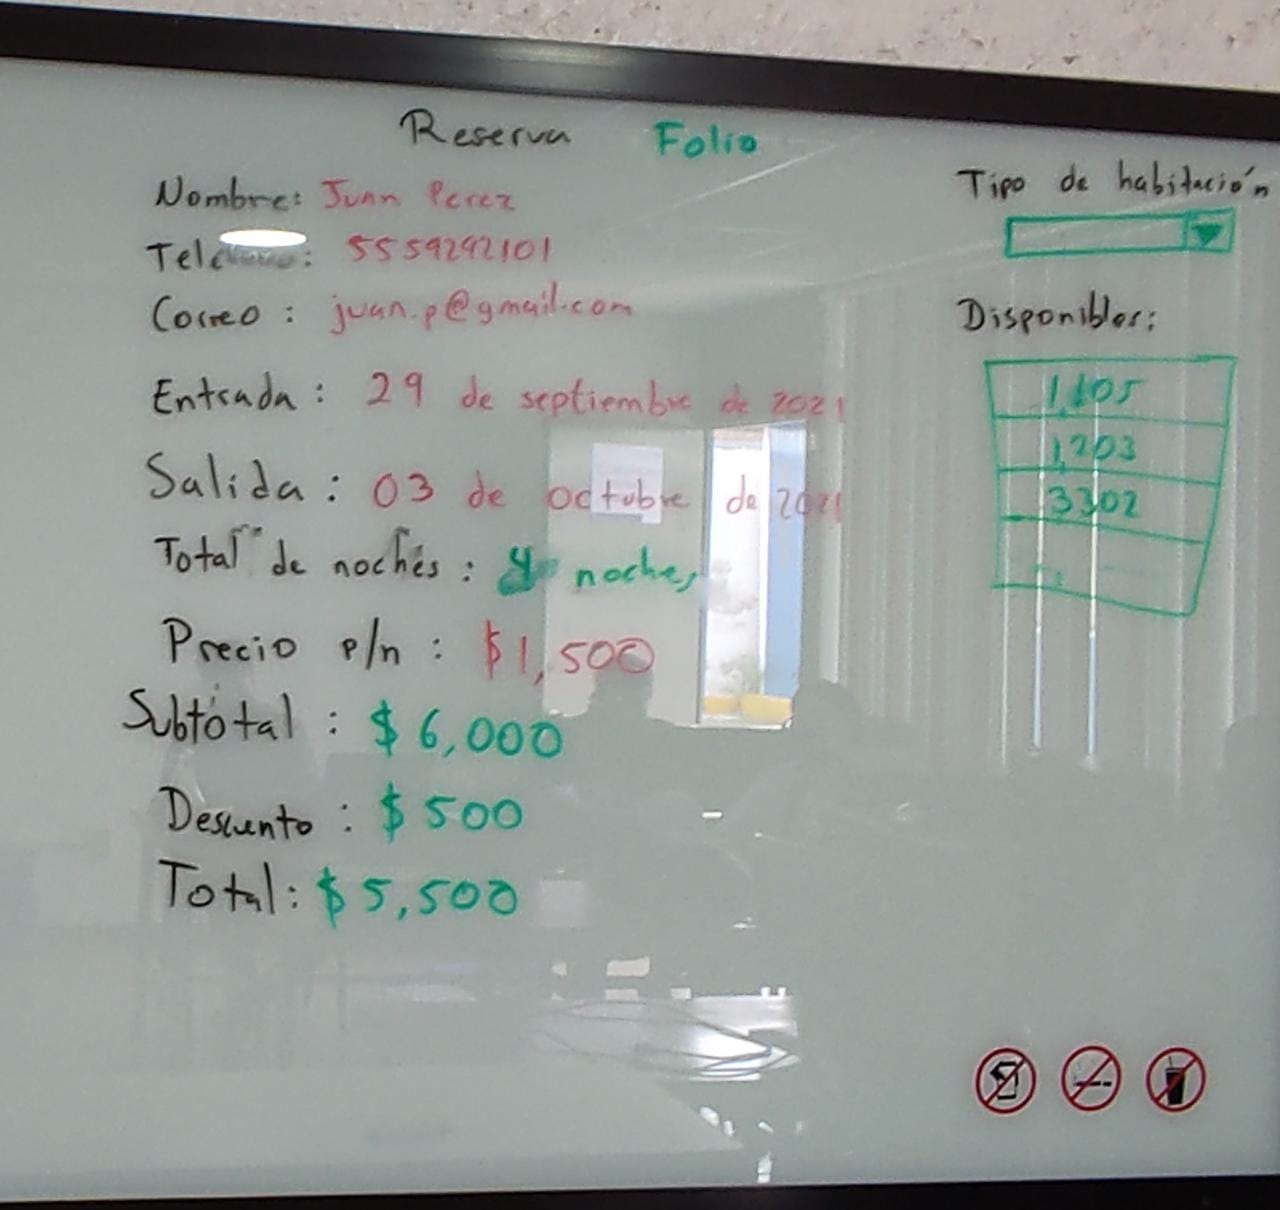 Reserva Folio
Nombre: Juan Perez
: 5559292101
Correo : juan.p@gmail.com
Entrada : 29 de septiembre de 2021
Salida : 03 de octubre de 2021
Total de noches : 4 noches
Precio p/n : $1,500
Subtotal : $ 6,000
Descuento : $ 500
Total: $ 5,500
Tipo de habitación
Disponibles:
1,105
1,203
3302